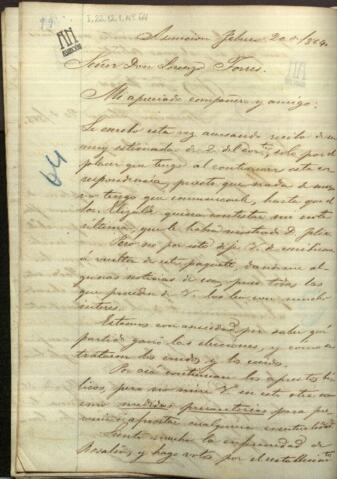 I.22.12.1 Nº 64
64
Asuncion Febrero 20 de 1864.
Señor Don Lorenzo Torres.
Mi apreciado compañero y amigo:
Le escribo esta vez acusando recibo de su
muy estimada de 2 del corrte, solo por el
placer que tengo al continuar esta cor
respondencia, puesto que nada de nuevo
tengo que comunicarle, hasta que el
Elizalde quiera contestar mi nota
última, que le habrá mostrado D. Felix
Pero no por esto deje V. de escribirme
á vuelta de este paquete, dandome al
gunas noticias de esa, pues todas las
que proceden de V. las leo con mucho
interes.
Estamos con ansiedad por saber qué
partido ganó las elecciones, y como se
trataron los crudos y los cocidos.
Por acá continúan los aprestos bé
licos, pero no mire V. en esto otra co
sa medidas precautorias para pre
cualquiera eventualidad.
Siento mucho la enfermedad de
Rosalia, y hago votos por el restablecimto